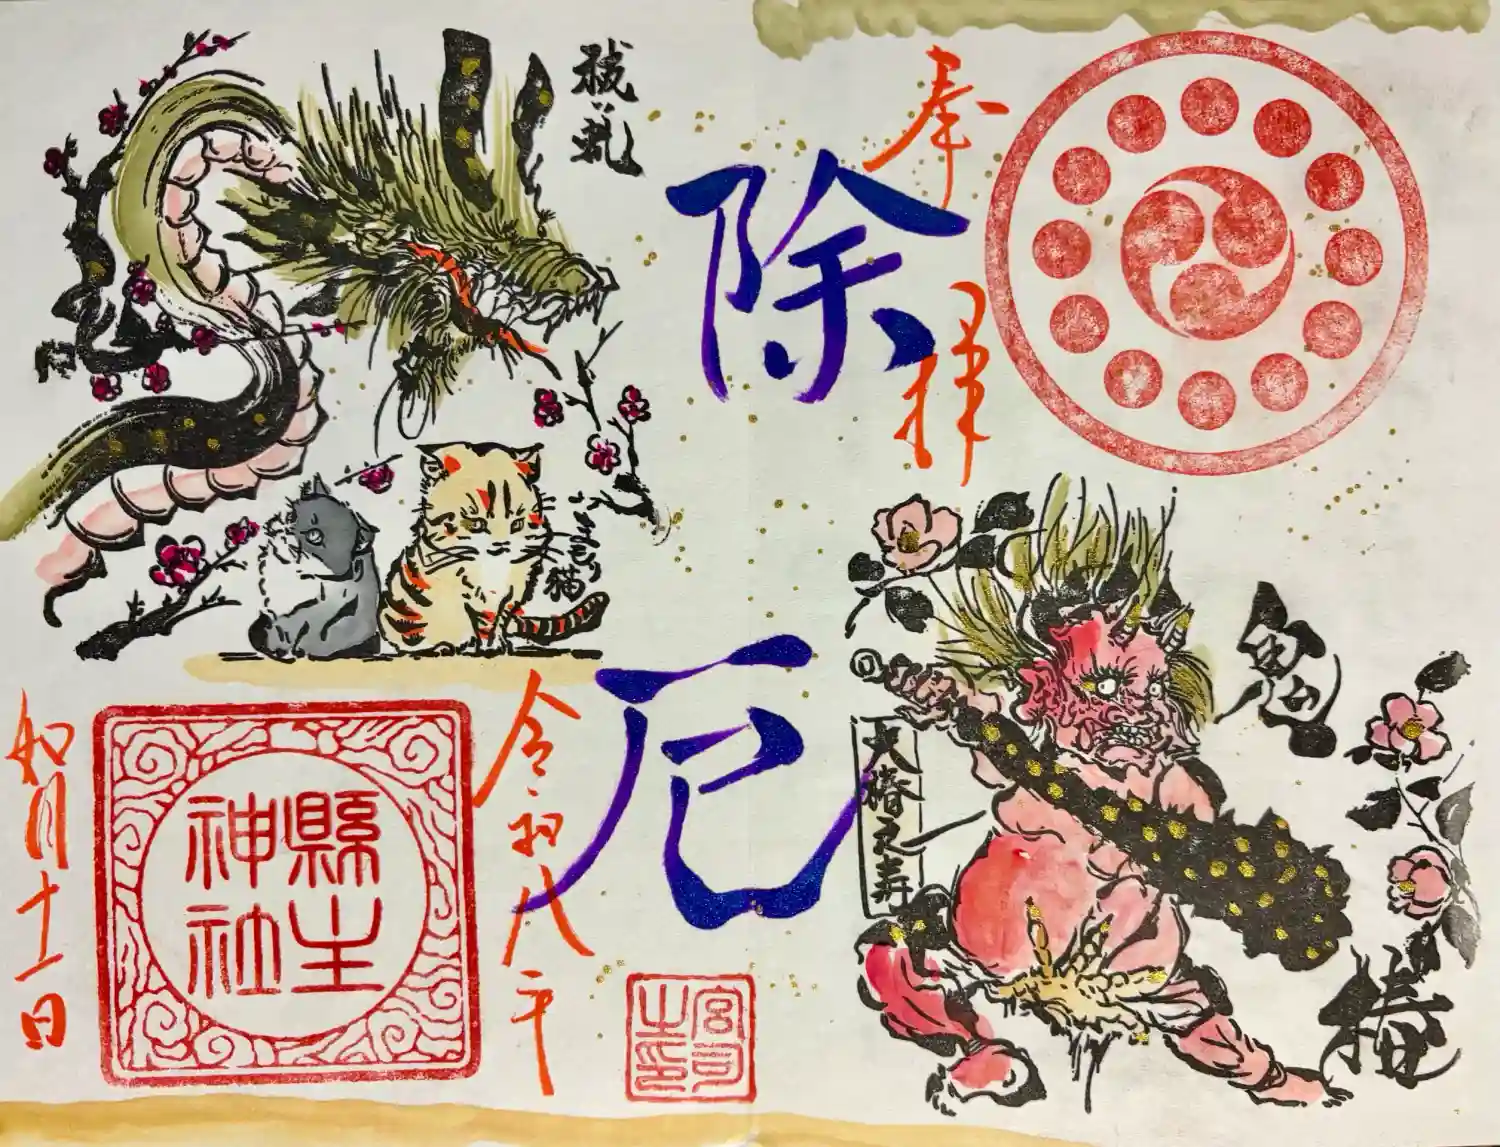 奉拝
除厄
鬼
椿
大椿之寿
祓い蚪
いまもり
猫
令和八年
如月十一日
縣主
神社
宮司
之印